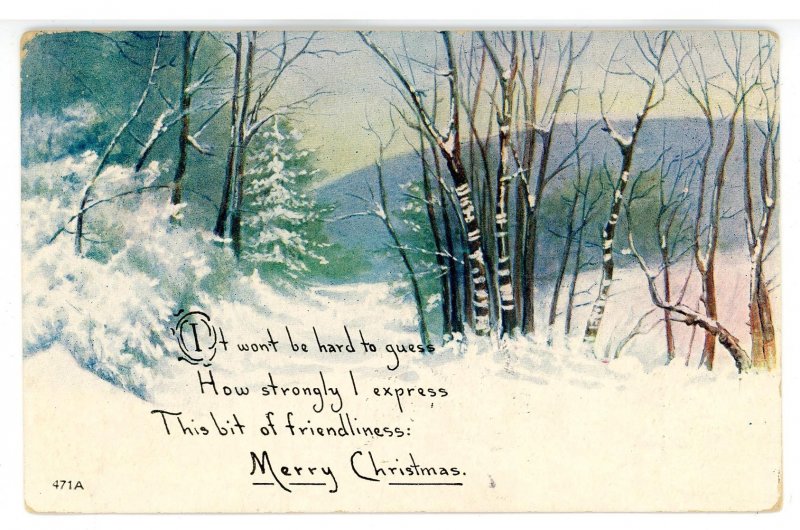 It won't be hard to guess
How strongly I express
This bit of friendliness:
Merry Christmas.
471A